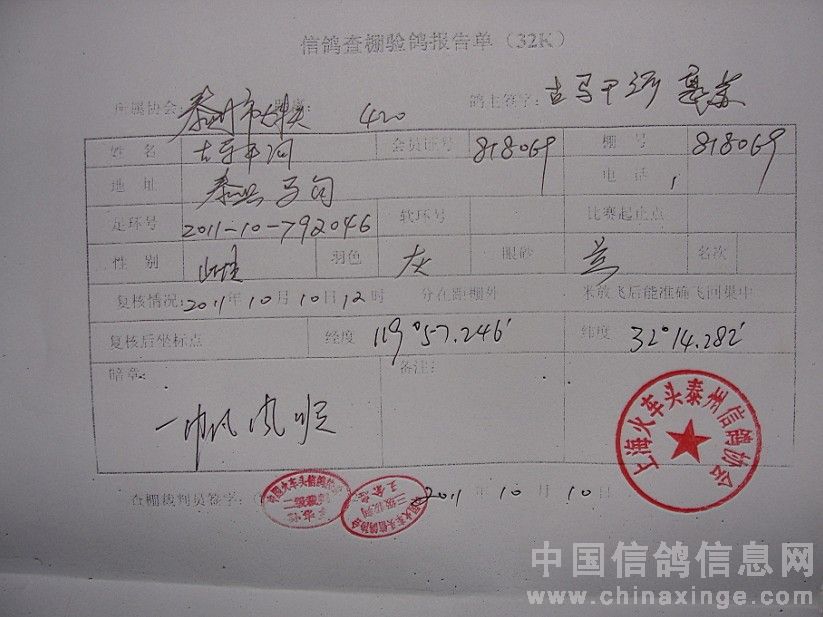 信鸽查棚验鸽报告单（32K）
所属协会： 泰州市 420 鸽主签字：
姓 名 会员证号 818069 棚 号 818069
地 址 泰兴 电 话
足环号 2011-10-792046 软环号 比赛起止点
性 别 雌 羽色 灰 眼砂 名次
复核情况：2011年10月10日12时 分在距棚外 米放飞后能准确飞回巢中
复核后坐标点 经度 119°57.246′ 纬度 32°14.282′
暗章： 备注：
一帆风顺
上海火车头泰州信鸽协会
查棚裁判员签字： 2011年10月10日
中国信鸽信息网
www.chinaxinge.com